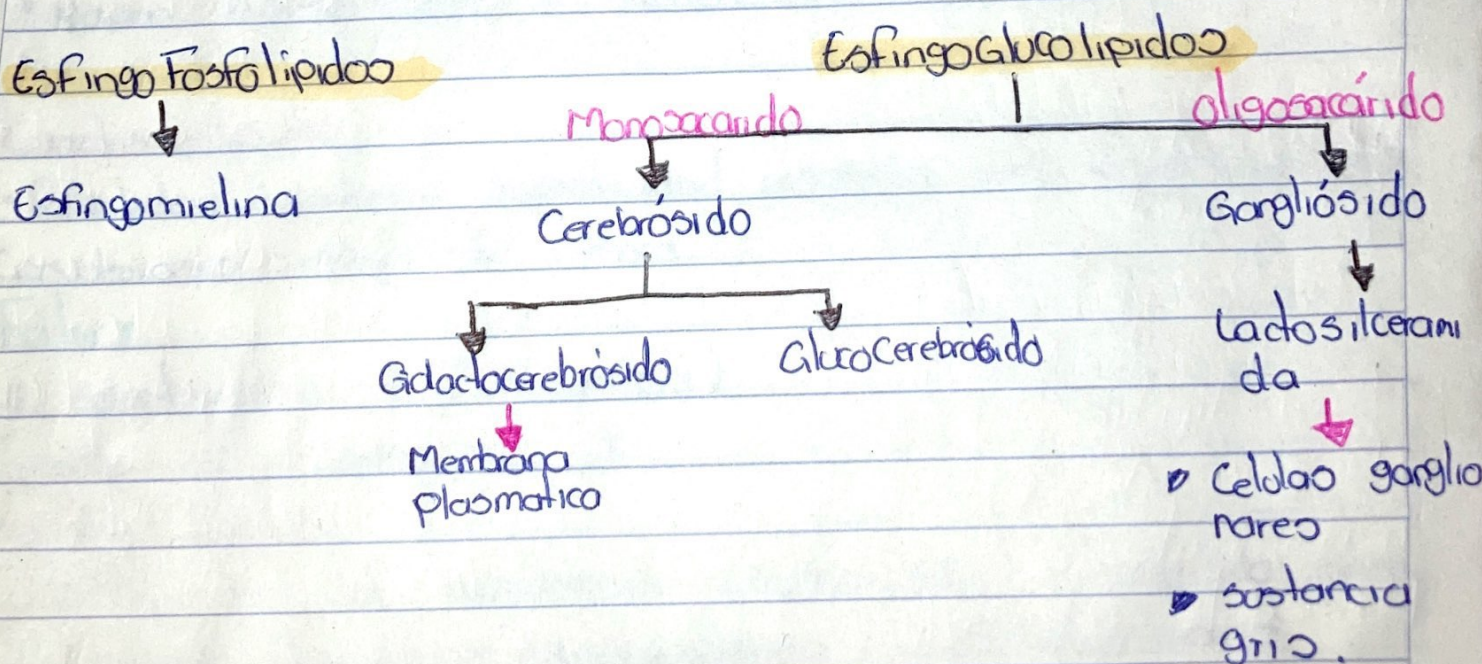 EsfingoFosfolipidos
EsfingoGlucolipidos
Monosacarido
Oligosacárido
Esfingomielina
Cerebrósido
Gangliósido
Galactocerebrósido
Glucocerebrósido
Lactosilcerami
da
Membrana
plasmatica
Celulas ganglio
nares
sustancia
gris.